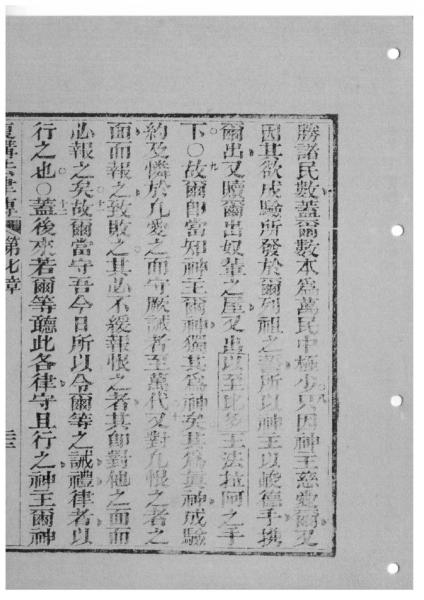 勝諸民數蓋爾數本爲萬民中極少只因神主慈愛爾又
因其欲成驗所發於爾列祖之誓所以神主以峻德手携
爾出又贖爾出奴輩之屋又出以至比多王法拉阿之手
下〇故爾卽當知神主爾神獨其爲神矣其爲眞神成驗
約及憐於凡愛之而守厥誡者至萬代又對凡恨之者之
面而報之致敗之其必不緩報恨之者其卽對他之面而
必報之矣故爾當守吾今日所以令爾等之誡禮律者以
行之也〇蓋後來若爾等聽此各律守且行之神主爾神
復講法世傳 第七章